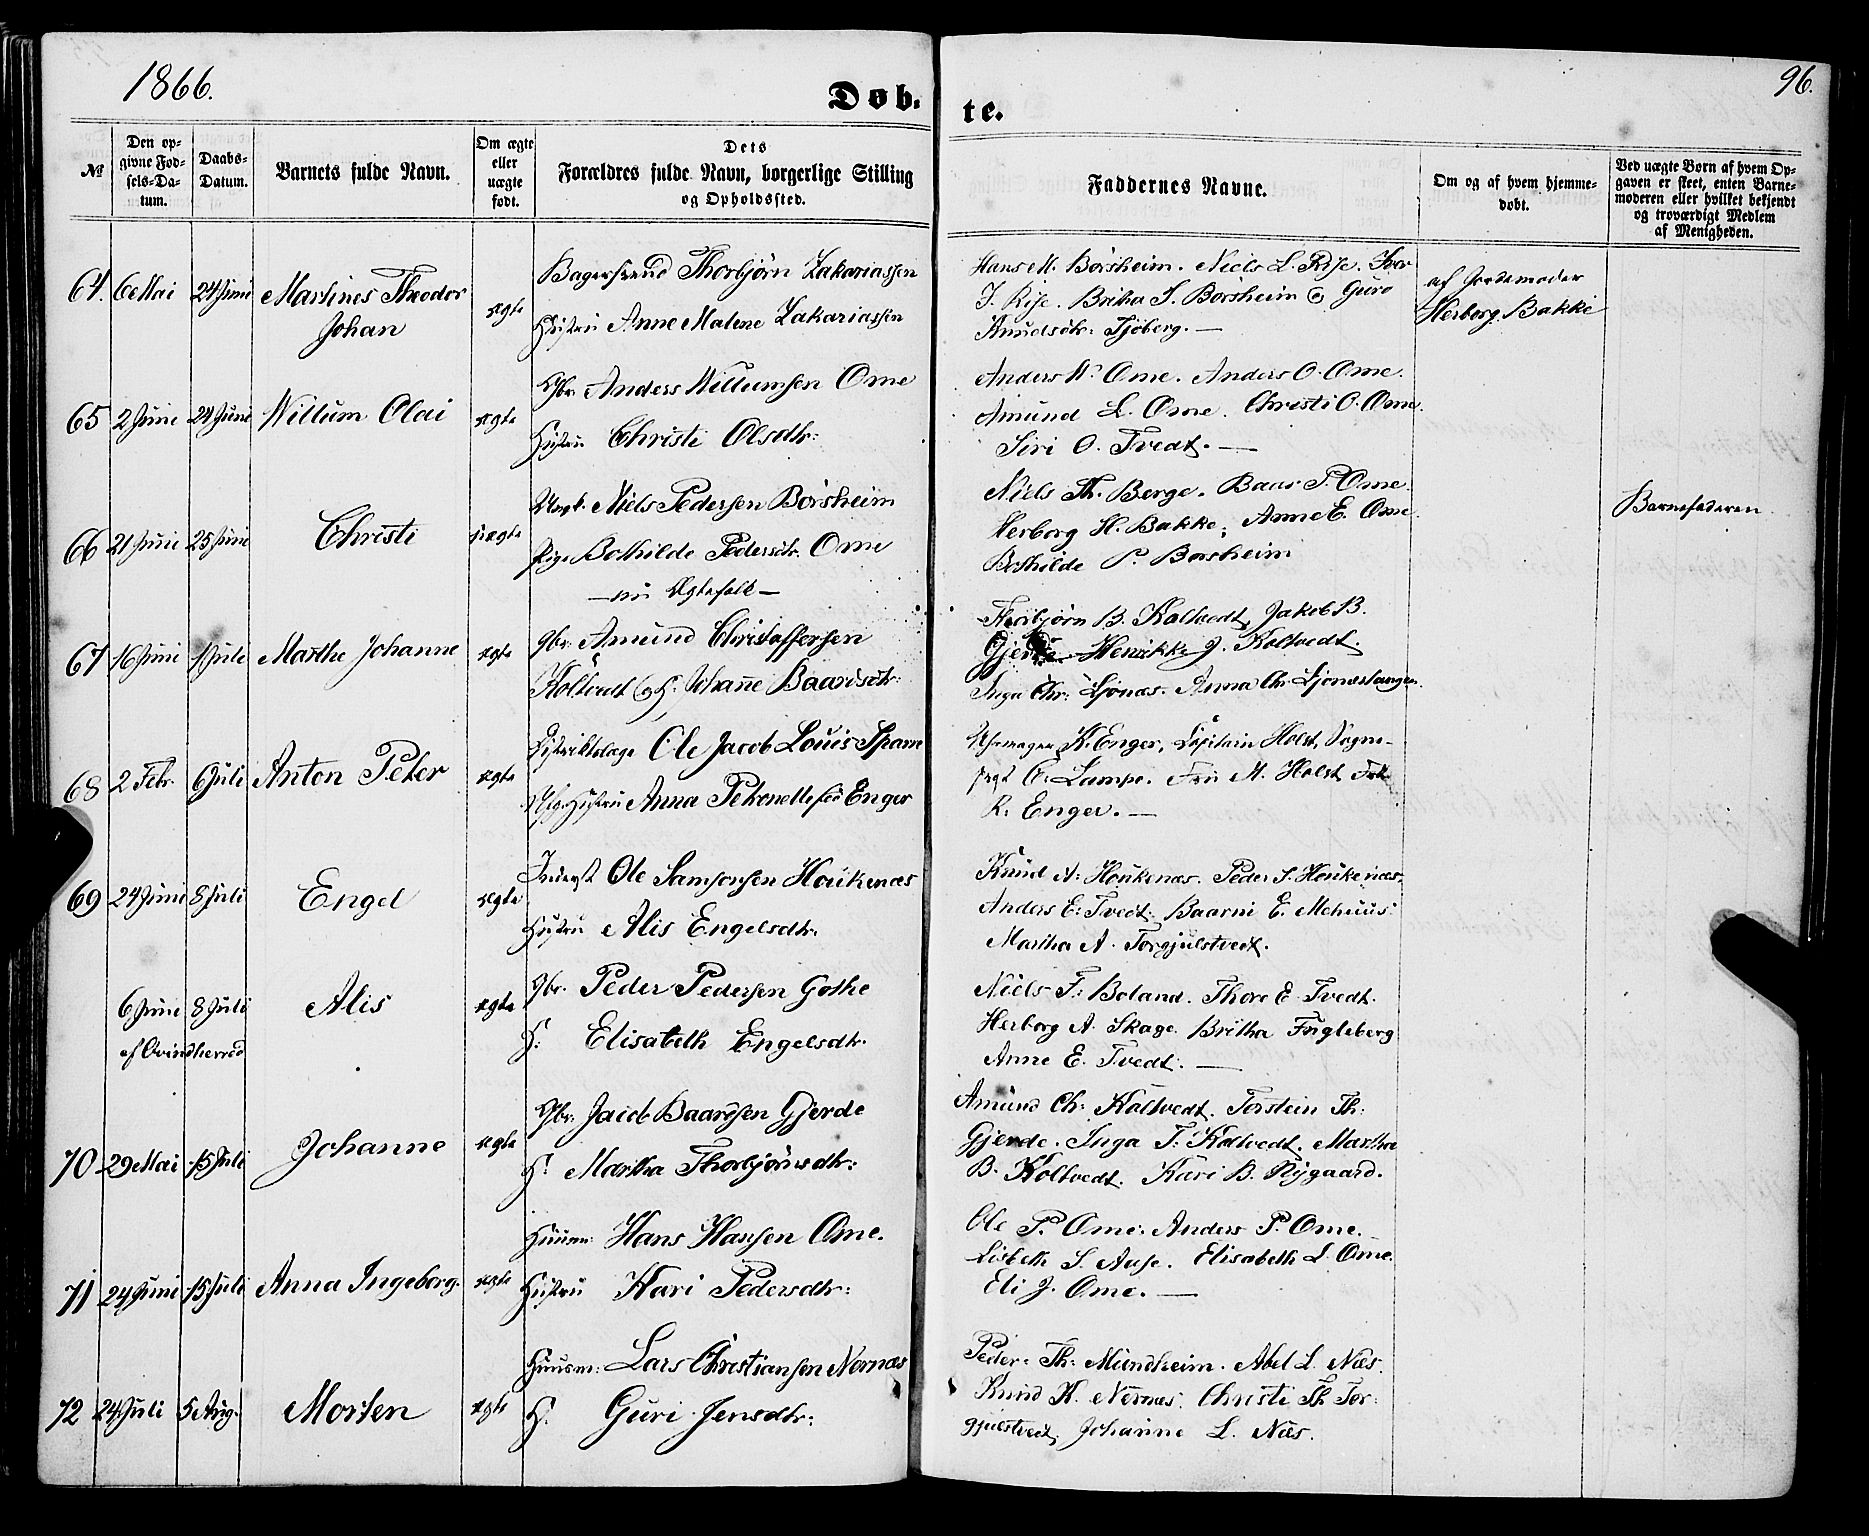 1866.
96.
Døb-
te.
№
Den op-
givne Fød-
sels-Da-
tum.
Daabs-
Datum.
Barnets fulde Navn.
Om ægte
eller
uægte
født.
Dets
Forældres fulde Navn, borgerlige Stilling
og Opholdssted.
Faddernes Navne.
Om og af hvem hjemme-
døbt.
Ved uægte Børn af hvem Op-
gaven er skeet, enten Barne-
moderen eller hvilket bekjendt
og troværdigt Medlem
af Menigheden.
64. 6 Mai 24 Juni Martines Theodor
Johan
ægte
Bagersvend Thorbjörn Zakariassen
Hustru Anne Malene Zakariassen
Hans M. Börsheim. Niels L. Rise. Iver
J. Rise. Britha S. Börsheim og Guro
Knudsdtr: Tjöberg. —
af Jordemoder
Herborg Bakke
65 2 Juni 24 Juni Willum Olai ægte
Gbr. Anders Willumsen Ome
Hustru Christi Olsdtr:
Anders W. Ome. Anders O. Ome.
Amund L. Ome. Christi O. Ome.
Siri O. Tvedt. —
66 21 Juni 25 Juni Christi uægte
Ungk. Niels Pedersen Börsheim
Pige Bothilde Pedersdtr. Ome
— nu Ægtefolk —
Niels Th. Berge. Baar P. Ome.
Herborg H. Bakke, Anne E. Ome
Bothilde P. Börsheim
Barnefaderen.
67 16 Juni 1 Juli Marthe Johanne ægte
Gbr. Amund Christoffersen
Koltvedt og H. Johanne Baardsdtr:
Thorbjörn B. Koltvedt, Jakob B.
Gjerde. Henrikke J. Koltvedt.
Inga Chr: Ljönæs. Anna Chr. Ljonæstangen.
68 2 Febr. 6 Juli Anton Peter ægte
Distriktslæge Ole Jacob Louis Sparre
Hustru Anna Petronelle föd Enger
K. Enger, Kapitain Holst, Sogne-
prest C. Lampe. Fru M. Holst, Frk
R. Enger. —
69 24 Juni 8 Juli Engel ægte
Inderst Ole Samsonsen Houkenæs
Hustru Alis Engelsdtr.
Knud A. Houkenæs. Peder S. Houkenæs.
Anders E. Tvedt. Baarni E. Mehuus.
Martha A. Torgjulstvedt.
6 Juni 8 Juli Alis ægte
af Qvindherred
Gbr. Peder Pedersen Gothe
H. Elisabeth Engelsdtr.
Niels T. Boland. Thore E. Tvedt.
Herborg A. Skage. Britha Fugleberg
Anne E. Tvedt. —
70 29 Mai 15 Juli Johanne ægte
Gbr. Jacob Baardsen Gjerde
H. Martha Thorbjörnsdtr:
Amund Ch. Koltvedt. Torstein Th:
Gjerde. Inga T. Koltvedt. Martha
B. Koltvedt. Kari B. Nygaard.
71 24 Juni 15 Juli Anna Ingeborg. ægte
Huusm: Hans Hansen Ome.
Hustru Kari Pedersdtr:
Ole P. Ome. Anders P. Ome.
Lisbeth S. Ause. Elisabeth L. Ome.
Eli J. Ome. —
72 24 Juli 5 Aug. Morten ægte
Huusm: Lars Christiansen Nernæs
H. Guri Jensdtr:
Peder Th: Mundheim. Abel L. Næs.
Knud K. Nernæs. Christi Th. Tor-
gjulstvedt, Johanne L. Næs.